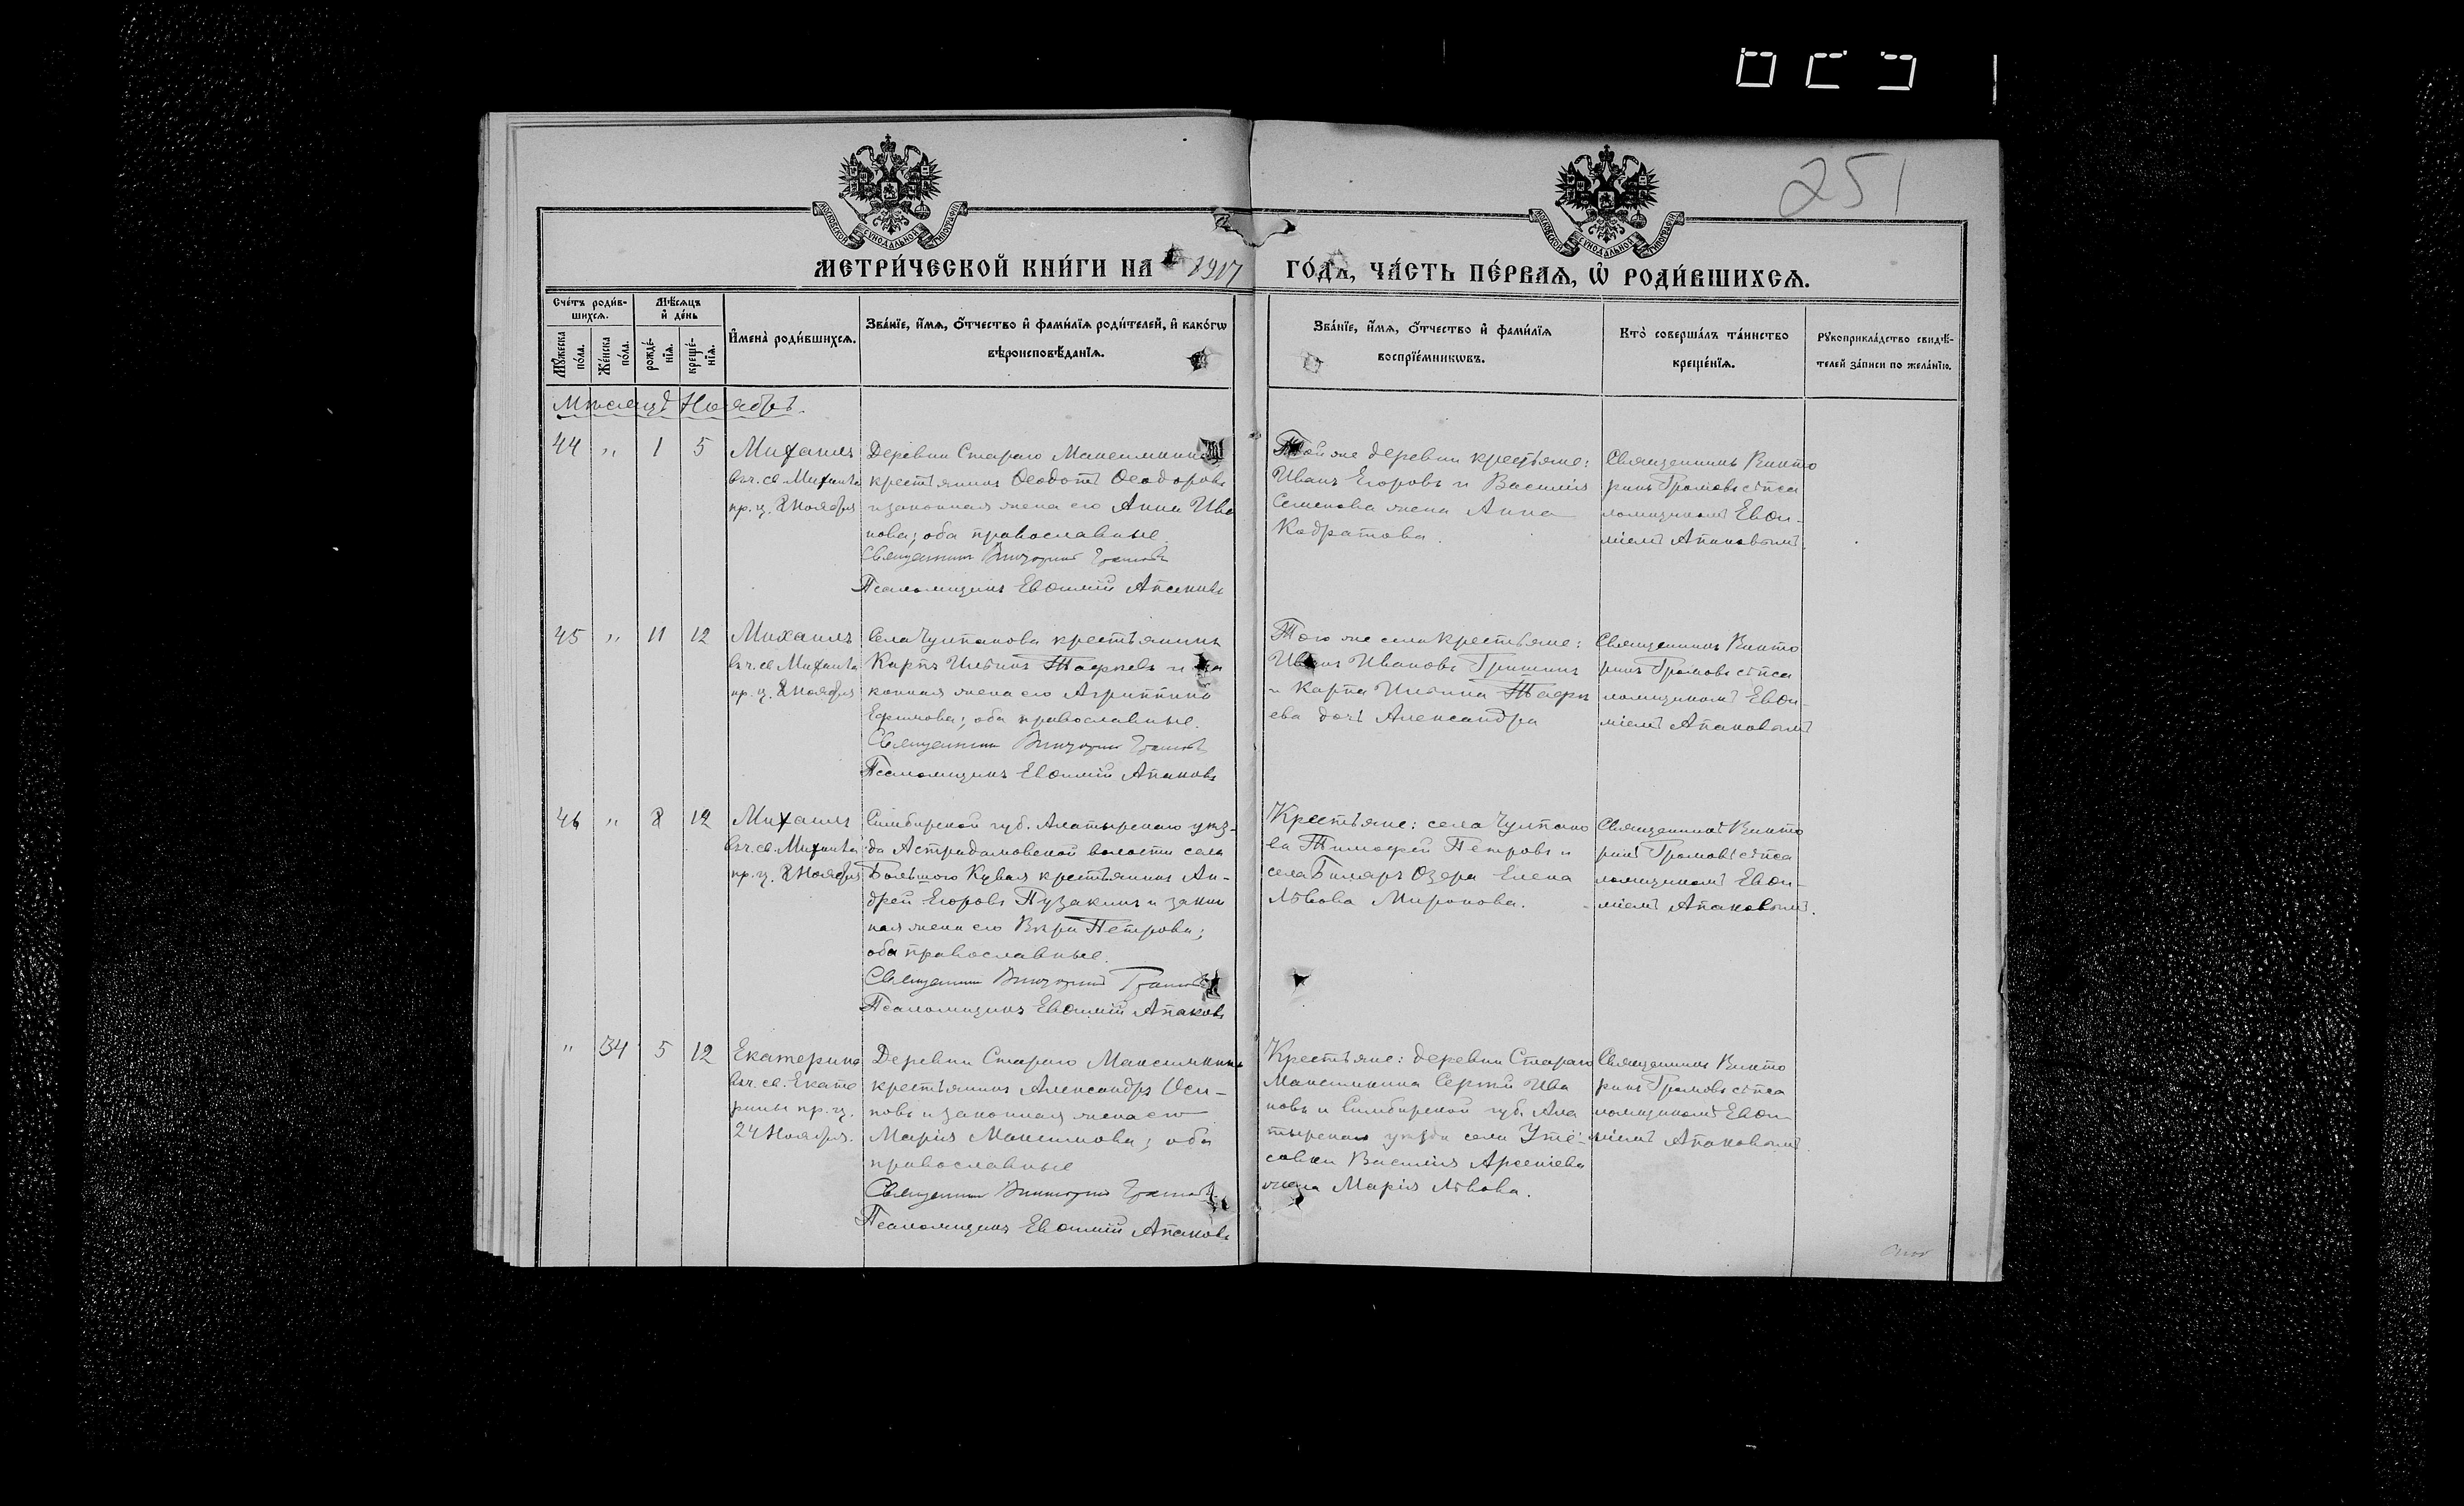 251
МОСКОВСКОЙ СУНОДАЛЬНОЙ ТИПОГРАФІИ
МОСКОВСКОЙ СУНОДАЛЬНОЙ ТИПОГРАФІИ
МЕТРИ́ЧЕСКОЙ КНИ́ГИ НА 1917 ГО́ДА, ЧА́СТЬ ПЕ́РВАЯ, Ѡ РОДИ́ВШИХСЯ.
Сче́тъ роди́в-
шихся.
Мꙋ́жеска
по́ла.
Же́нска
по́ла.
Мѣ́сяцъ
и де́нь
рожде́-
нїя.
креще́-
нїя.
Имена̀ роди́вшихся.
Зва́нїе, и́мя, о́тчество и фами́лїя роди́телей, и како́гѡ
вѣроисповѣ́данїя.
Зва́нїе, и́мя, о́тчество и фами́лїя
воспрїе́мникѡвъ.
Кто̀ соверша́лъ та́инство
креще́нїя.
Рꙋкоприкла́дство свидѣ́-
телей за́писи по жела́нїю.
Мѣсяцъ Ноябрь.
44 " 1 5
Михаилъ
въ ч. св. Михаила
пр. ц. 8 Ноября
Деревни Стараго Максимкина
крестьянинъ Ѳеодотъ Ѳеодоровъ
и законная жена его Анна Ива
нова; оба православные.
Священникъ Викторинъ Громовъ
Псаломщикъ Евѳимій Апаковъ
Той же деревни крестьяне:
Иванъ Егоровъ и Василія
Семенова жена Анна
Кодратова.
Священникъ Викто
ринъ Громовъ съ пса
ломщикомъ Евѳи-
міемъ Апаковымъ.
45 " 11 12
Михаилъ
въ ч. св. Михаила
пр. ц. 8 Ноября
Села Чулпанова крестьянинъ
Карпъ Ильинъ и за
конная жена его Агриппина
Ефимова; оба православные.
Священникъ Викторинъ Громовъ
Псаломщикъ Евѳимій Апаковъ
Того же села крестьяне:
Иванъ Ивановъ Гришинъ
и Карпа Ильина
ева дочь Александра
Священникъ Викто
ринъ Громовъ съ пса
ломщикомъ Евѳи-
міемъ Апаковымъ
46 " 8 12
Михаилъ
въ ч. св. Михаила
пр. ц. 8 Ноября
Симбирской губ. Алатырскаго уѣз-
да Астрадамовской волости села
Большого Кувая крестьянинъ Ан-
дрей Егоровъ Пузакинъ и закон
ная жена его Вѣра Петрова;
оба православные.
Священникъ Викторинъ Громовъ
Псаломщикъ Евѳимій Апаковъ
Крестьяне: села Чулпано
ва Тимофей Петровъ и
села Биляръ Озера Елена
Львова Миронова.
Священникъ Викто
ринъ Громовъ съ пса
ломщикомъ Евѳи-
міемъ Апаковымъ.
" 34 5 12
Екатерина
въ ч. св. Екате
рины пр. ц.
24 Ноября.
Деревни Стараго Максимкина
крестьянинъ Александръ Оси-
повъ и законная жена его
Марія Максимова; оба
православные
Священникъ Викторинъ Громовъ
Псаломщикъ Евѳимій Апаковъ
Крестьяне: деревни Стараго
Максимкина Сергій Ива
новъ и Симбирской губ. Ала
тырскаго уѣзда села Утё-
совки Василія Арсеніева
жена Марія Львова.
Священникъ Викто
ринъ Громовъ съ пса
ломщикомъ Евѳи-
міемъ Апаковымъ.